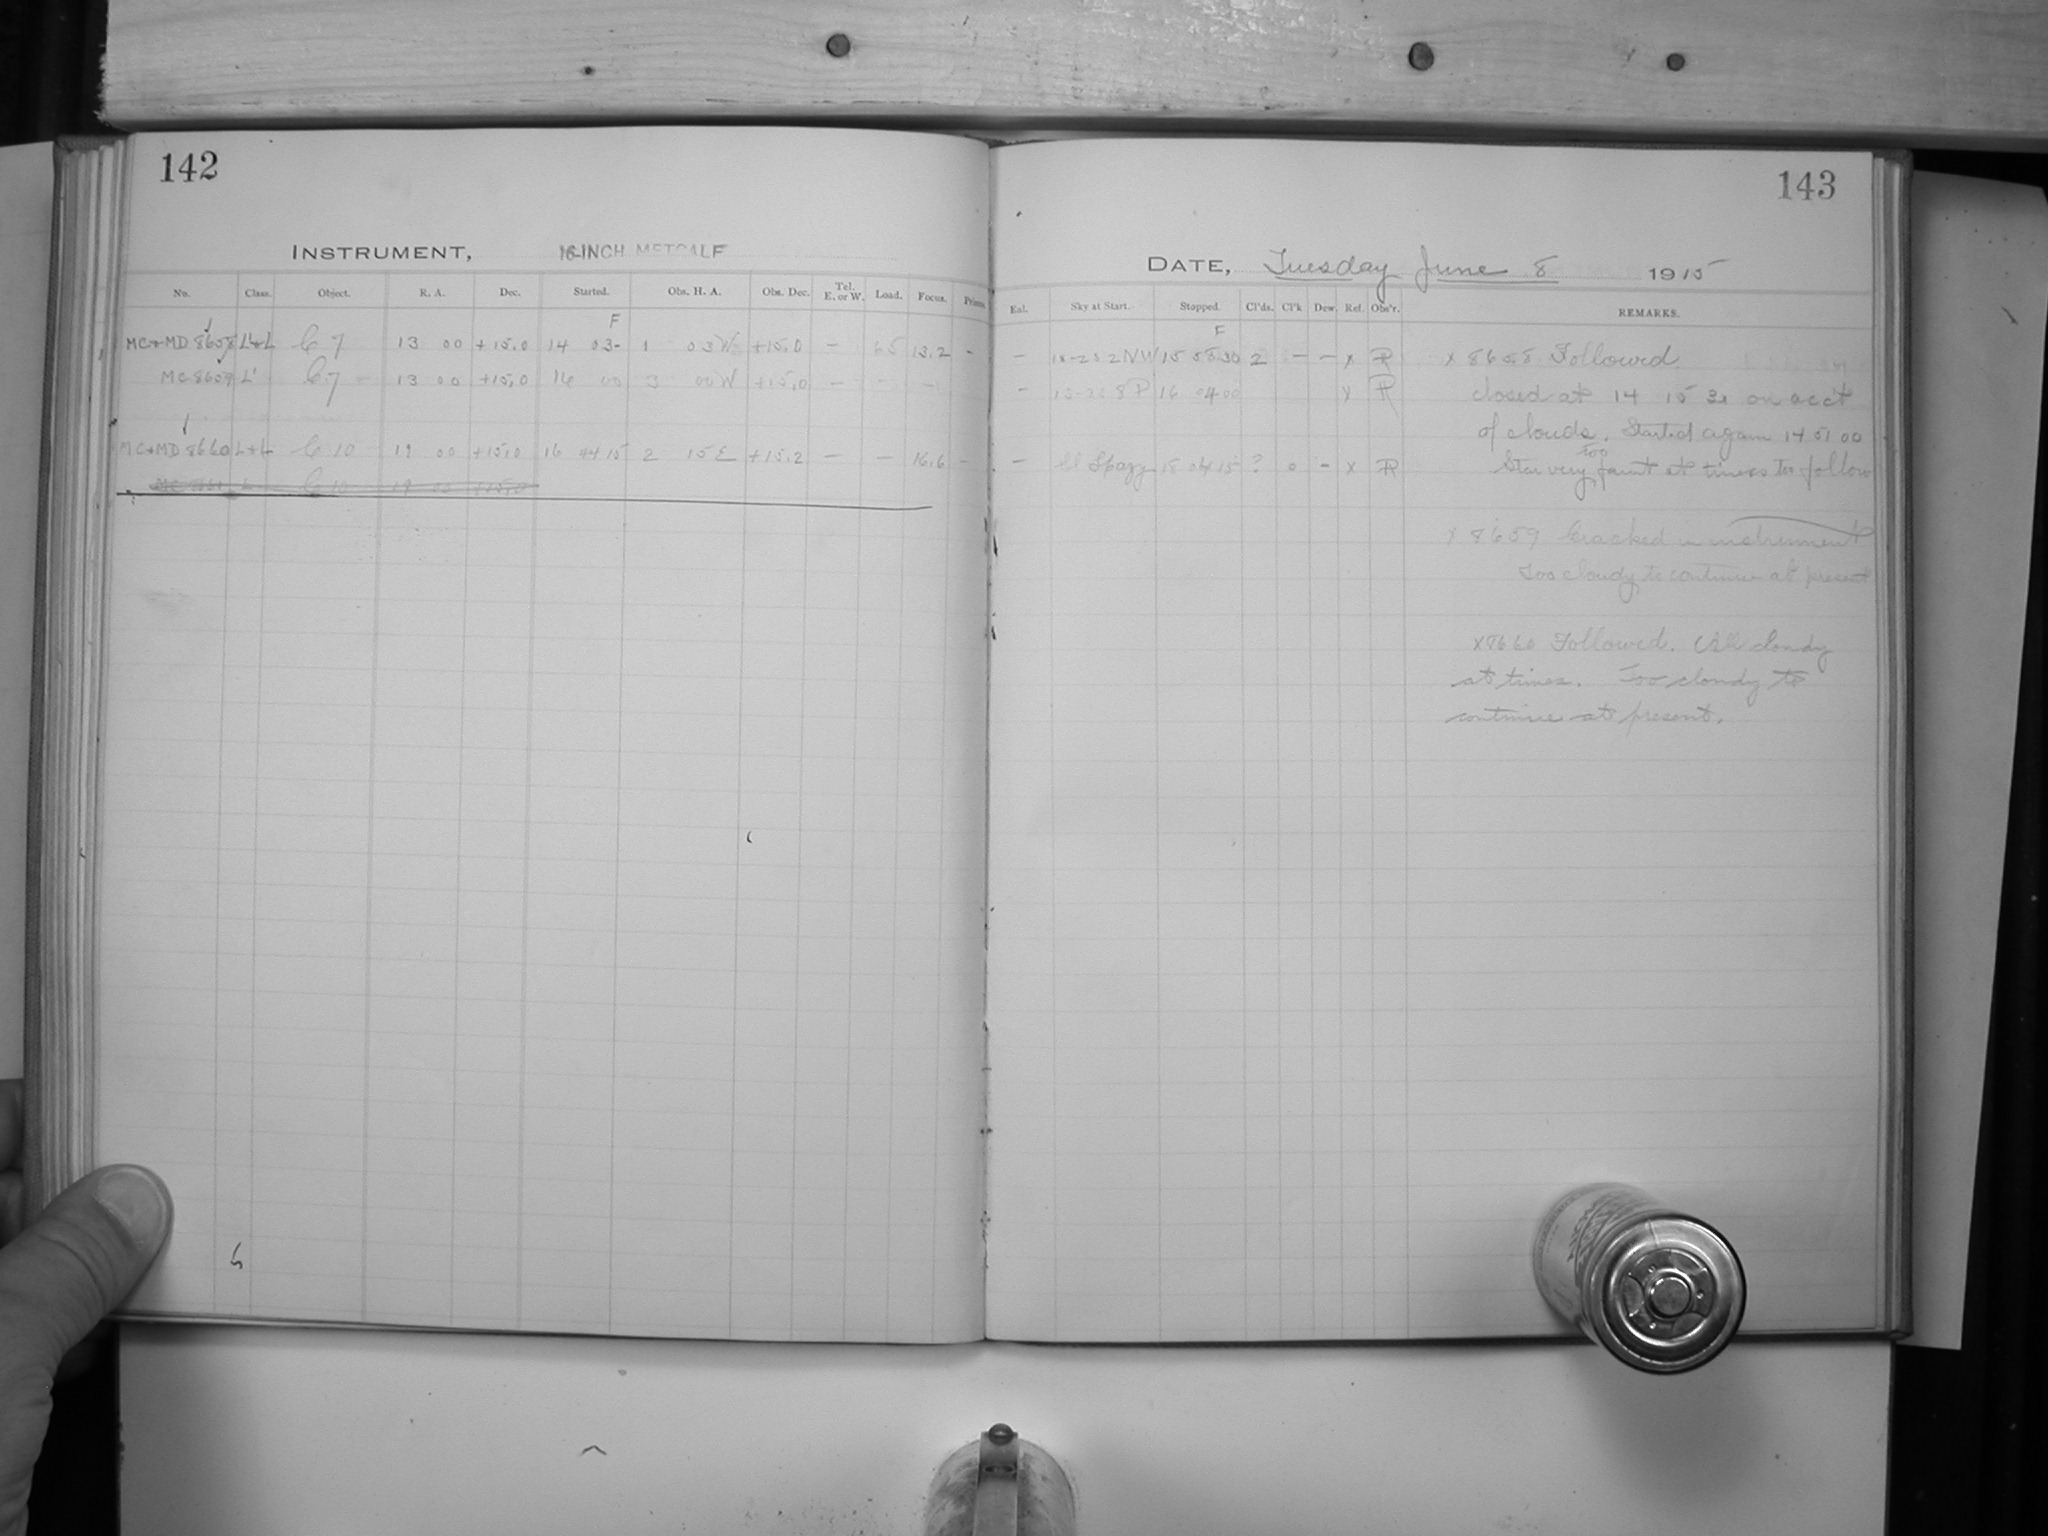 142
INSTRUMENT, 16-INCH METCALF
No. Class. Object. R. A. Dec. Started. Obs. H. A. Obs. Dec. Tel. E. or W. Load. Focus.
F
MC+MD 8658 L+L C 7 13 00 +15.0 14 03- 1 03 W +15.0 – 65 13.2 -
MC 8659 L' C 7 13 00 +15.0 16 00 3 00 W +15.0 – - –
MC+MD 8660 L+L C 10 19 00 +15.0 16 44 15 2 15 E +15.2 – – 16.6 -
C 10 19 00 +15.0
143
DATE, Tuesday June 8 1915
Eal. Sky at Start. Stopped. Cl'ds. Cl'k Dew. Ref. Obs'r. REMARKS.
F
– 15 58 30 2 – – x R x 8658 Followed
– 16 04 00 x R closed at 14 15 on acct
of clouds. Started again 14 51 00
– 18 04 15 ? 0 - x R Star very too faint at times to follow
x 8659 Cracked in instrument
Too cloudy to continue at present
x 8660 Followed. All cloudy
at times. Too cloudy to
continue at present.